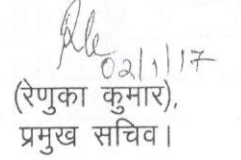 02/1/17
(रेणुका कुमार),
प्रमुख सचिव।